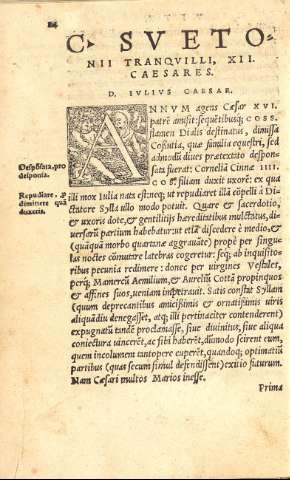 24
C. SVETO-
NII TRANQVILLI, XII.
CAESARES.
D. IVLIVS CAESAR.
ANNVM agens Cæsar XVI.
patrē amisit: sequētibusq; COSS.
flamen Dialis destinatus, dimissa
Cossutia, quæ familia equestri, sed
admodū diues prætextato despon-
sata fuerat: Corneliā Cinnæ IIII
COSS. filiam duxit uxorē: ex qua
Despōsata, pro
desponsa.
Repudiare, &
dimittere quā
duxeris.
illi mox Iulia nata est: neq; ut repudiaret illā cōpelli à Di-
ctatore Sylla ullo modo potuit. Quare & sacerdotio,
& uxoris dote, & gentilitijs hæreditatibus mulctatus, di-
uersarū partium habebatur: ut etiā discedere è medio, &
(quāquā morbo quartanæ aggrauāte) propè per singu-
las noctes cōmutare latebras cogeretur: seq; ab inquisito-
ribus pecunia redimere: donec per uirgines Vestales,
perq; Mamercū Aemilium, & Aureliū Cottā propinquos
& affines suos, ueniam impetrauit. Satis constat Syllam
(quum deprecantibus amicissimis & ornatissimis uiris
aliquādiu denegasset, atq; illi pertinaciter contenderent)
expugnatū tandē proclamasse, siue diuinitus, siue aliqua
coniectura uincerēt, ac sibi haberēt, dūmodo scirent eum,
quem incolumem tantopere cuperēt, quandoq; optimatiū
partibus (quas secum simul defendissent) exitio futurum.
Nam Cæsari multos Marios inesse.
Prima